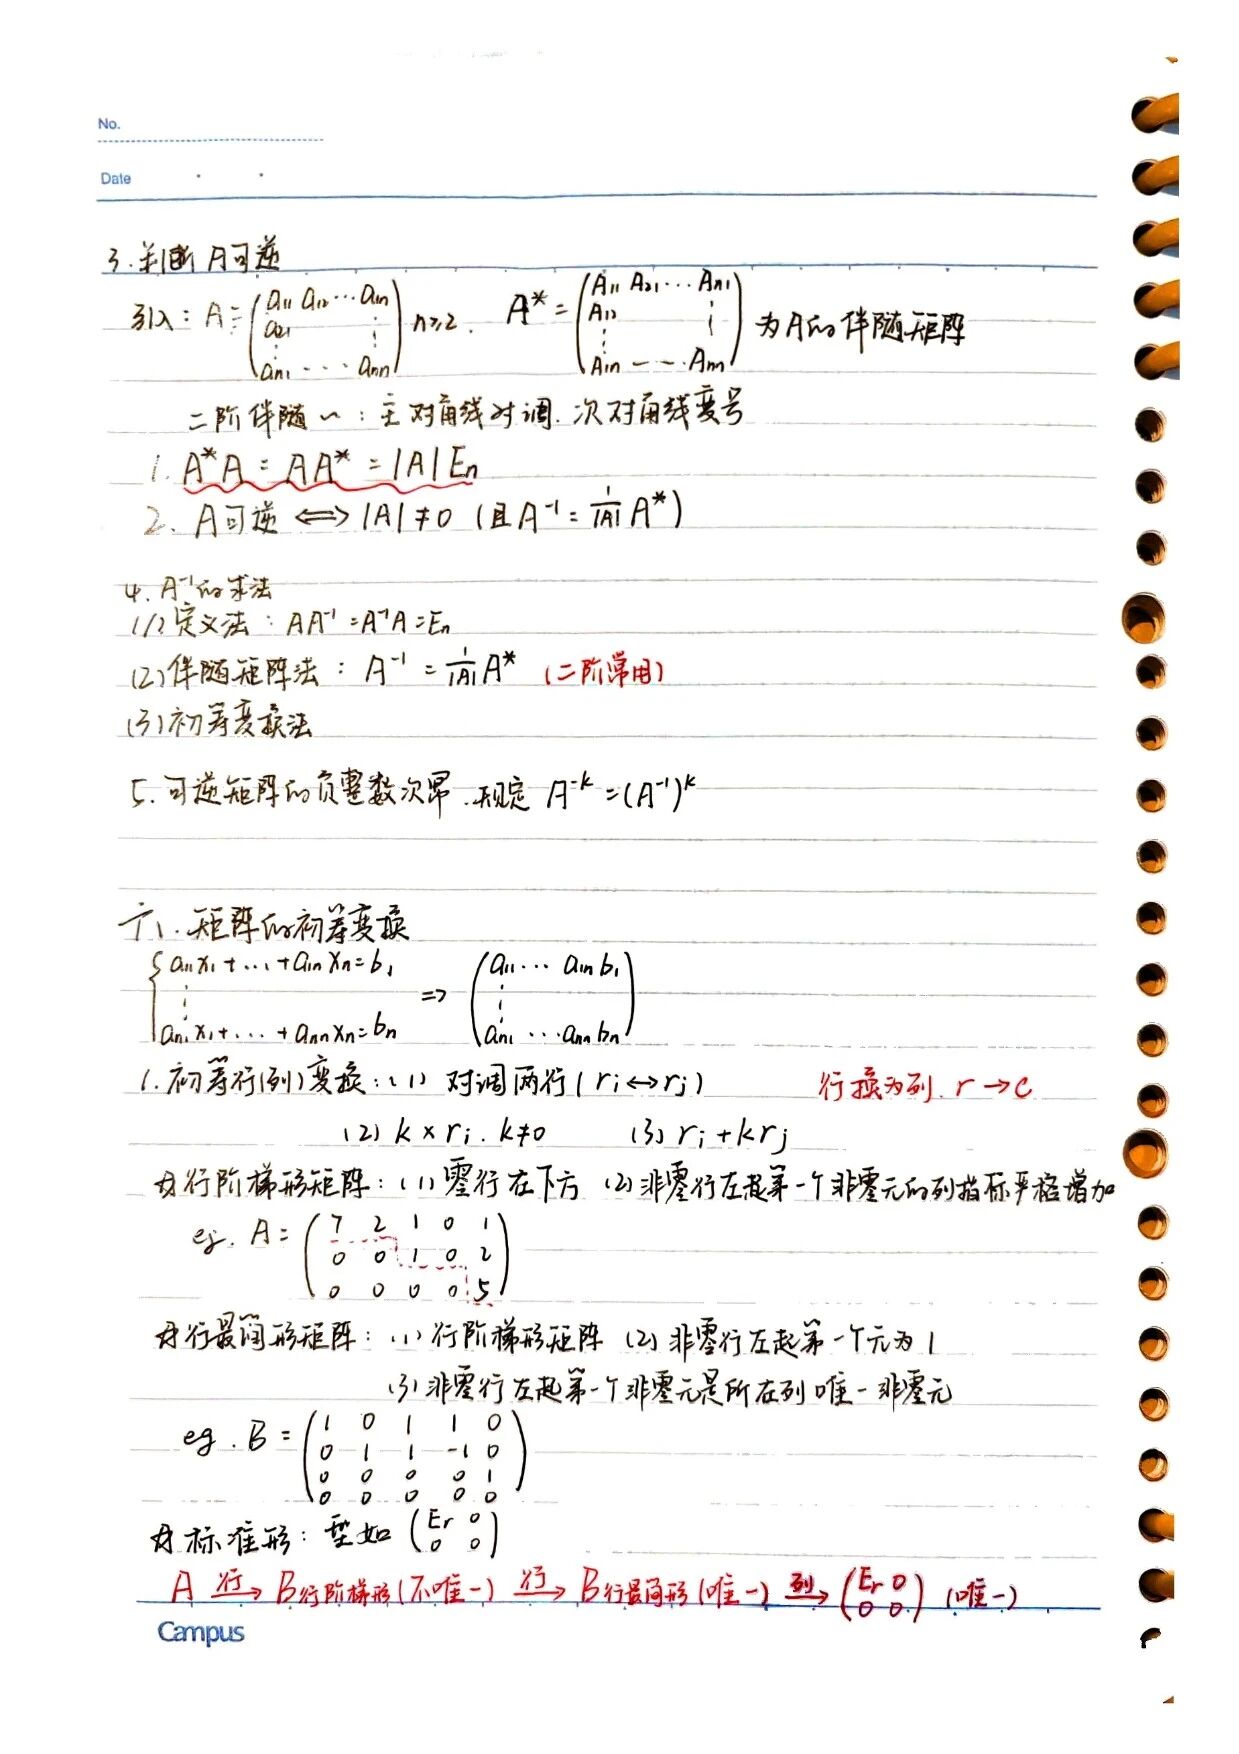 No.
Date
3. 判断A可逆
引入: A = (a₁₁ a₁₂ ··· a₁ₙ / a₂₁ ⋮ / ⋮ / aₙ₁ ··· aₙₙ) n≥2. A* = (A₁₁ A₂₁ ··· Aₙ₁ / A₁₂ ⋮ / ⋮ / A₁ₙ ··· Aₙₙ) 为A的伴随矩阵
二阶伴随~: 主对角线对调. 次对角线变号
1. A*A = AA* = |A|Eₙ
2. A可逆 ⟺ |A|≠0 (且A⁻¹ = 1/|A| A*)
4. A⁻¹的求法
(1) 定义法: AA⁻¹ = A⁻¹A = Eₙ
(2) 伴随矩阵法: A⁻¹ = 1/|A| A* (二阶常用)
(3) 初等变换法
5. 可逆矩阵的负整数次幂. 规定 A⁻ᵏ = (A⁻¹)ᵏ
六、矩阵的初等变换
{a₁₁x₁+...+a₁ₙxₙ=b₁ / ⋮ / aₙ₁x₁+...+aₙₙxₙ=bₙ ⇒ (a₁₁ ··· a₁ₙ b₁ / ⋮ / aₙ₁ ··· aₙₙ bₙ)
1. 初等行(列)变换: (1) 对调两行(rᵢ↔rⱼ) 行换为列. r→c
(2) k×rᵢ. k≠0 (3) rᵢ+krⱼ
行阶梯形矩阵: (1) 零行在下方 (2) 非零行左起第一个非零元的列指标严格增加
eg. A = (7 2 1 0 1 / 0 0 1 0 2 / 0 0 0 0 5)
行最简形矩阵: (1) 行阶梯形矩阵 (2) 非零行左起第一个元为1
(3) 非零行左起第一个非零元是所在列唯一非零元
eg. B = (1 0 1 1 0 / 0 1 1 -1 0 / 0 0 0 0 1 / 0 0 0 0 0)
标准形: 型如 (Eᵣ 0 / 0 0)
A 行→ B行阶梯形(不唯一) 行→ B行最简形(唯一) 列→ (Eᵣ 0 / 0 0) (唯一)
Campus